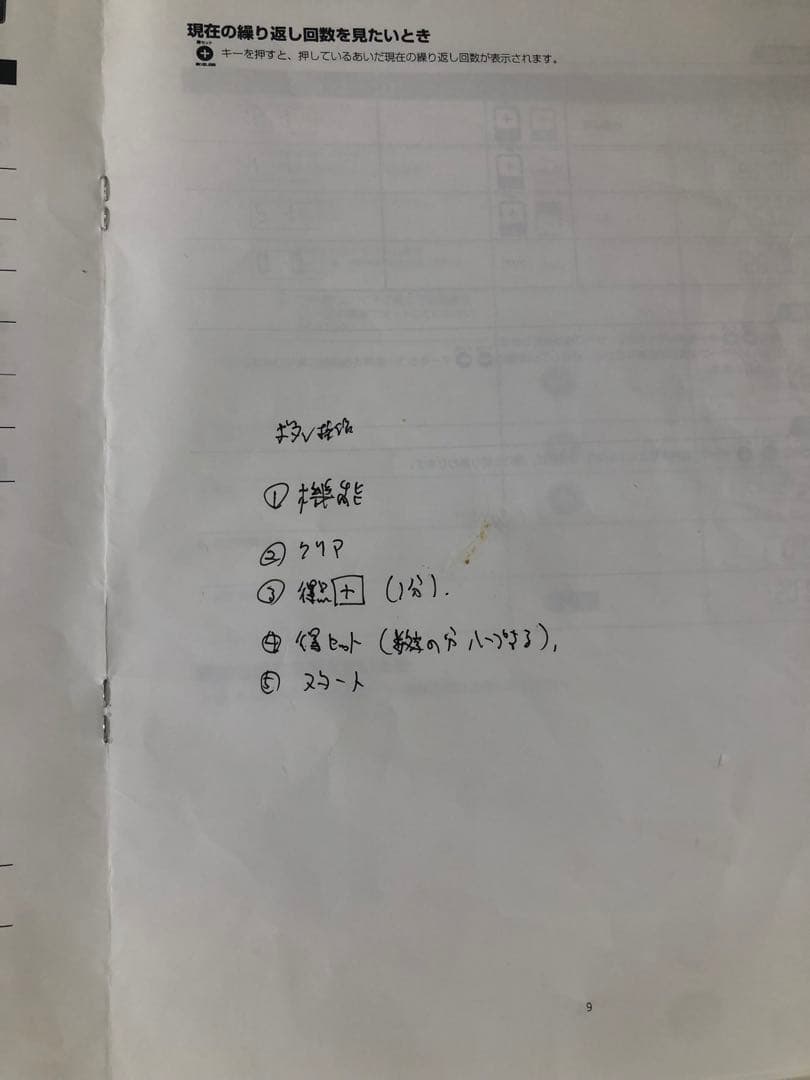 現在の繰り返し回数を見たいとき
キーを押すと、押しているあいだ現在の繰り返し回数が表示されます。
ボタン
① 機能
② クリア
③ 得点 + (1分).
④ 得セット
⑤ スタート
9